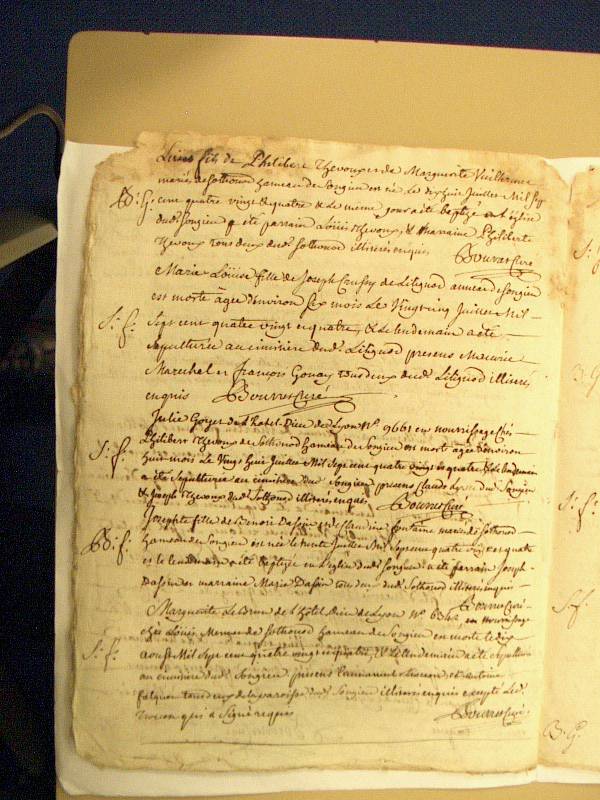 Louis fils de Philibert Thevoux et de Marguerite Vuillerme
mariés de Sothonod hameau de Songieu est né le dix huit Juillet Mil sept
B. G. cent quatre vingt et quatre & le même jour a été baptizé en l'église
dud. Songieu a été parrain Louis Thevoux, & marraine Philiberte
Thevoux tous deux dud. Sothonod illiterés enquis
Bourret Curé
Marie Louise fille de Joseph de Litignod hameau de Songieu
est morte âgée d'environ six mois le vingt cinq Juillet Mil
S. f. Sept cent quatre vingt et quatre, & le lendemain a été
Sepulturée au cimitière dud. Litignod presens Maurice
Marechel et françois Gonay tous deux dud. Litignod illiterés
enquis Bourret Curé
Julie Goyet de l'hotel-Dieu de Lyon N° 9661 en nourrissage chés
Philibert Thevoux de Sothonod hameau de Songieu est morte agée d'environ
S. f. huit mois le vingt huit Juillet Mil Sept cent quatre vingt et quatre & le lendemain
a été Sepulturée au cimitière dud. Songieu presens Claude dud. Songieu
& Joseph Thevoux dud. Sothonod illiterés enquis Bourret Curé
Josephte fille de Benoit Dassin et de Claudine fontaine mariés de Sothonod
B. f. hameau de Songieu est née le trente Juillet Mil Sept cent quatre vingt et quatre
et le lendemain a été baptizée en l'église dud. Songieu a été parrain Joseph
Dassin et marraine Marie Dassin tous deux dud. Sothonod illiterés enquis
Bourret Curé
Marguerite de l'hôtel Dieu de Lyon N° en nourrissage
chés Louis de Sothonod hameau de Songieu est morte le dix
S. f. aoust Mil Sept cent quatre vingt et quatre, & le lendemain a été Sepulturée
au cimitière dud. Songieu presens et antoine
tous deux de la paroisse dud. Songieu illiterés enquis excepté led.
qui a Signé requis Bourret Curé
S.
B. G.
S. f.
S. f.
B. G.